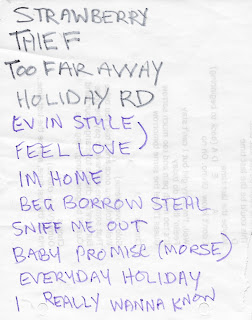 STRAWBERRY
THIEF
TOO FAR AWAY
HOLIDAY RD
EV IN STYLE
FEEL LOVE
IM HOME
BEG BORROW STEAL
SNIFF ME OUT
BABY PROMISE (MORSE)
EVERYDAY HOLIDAY
I REALLY WANNA KNOW